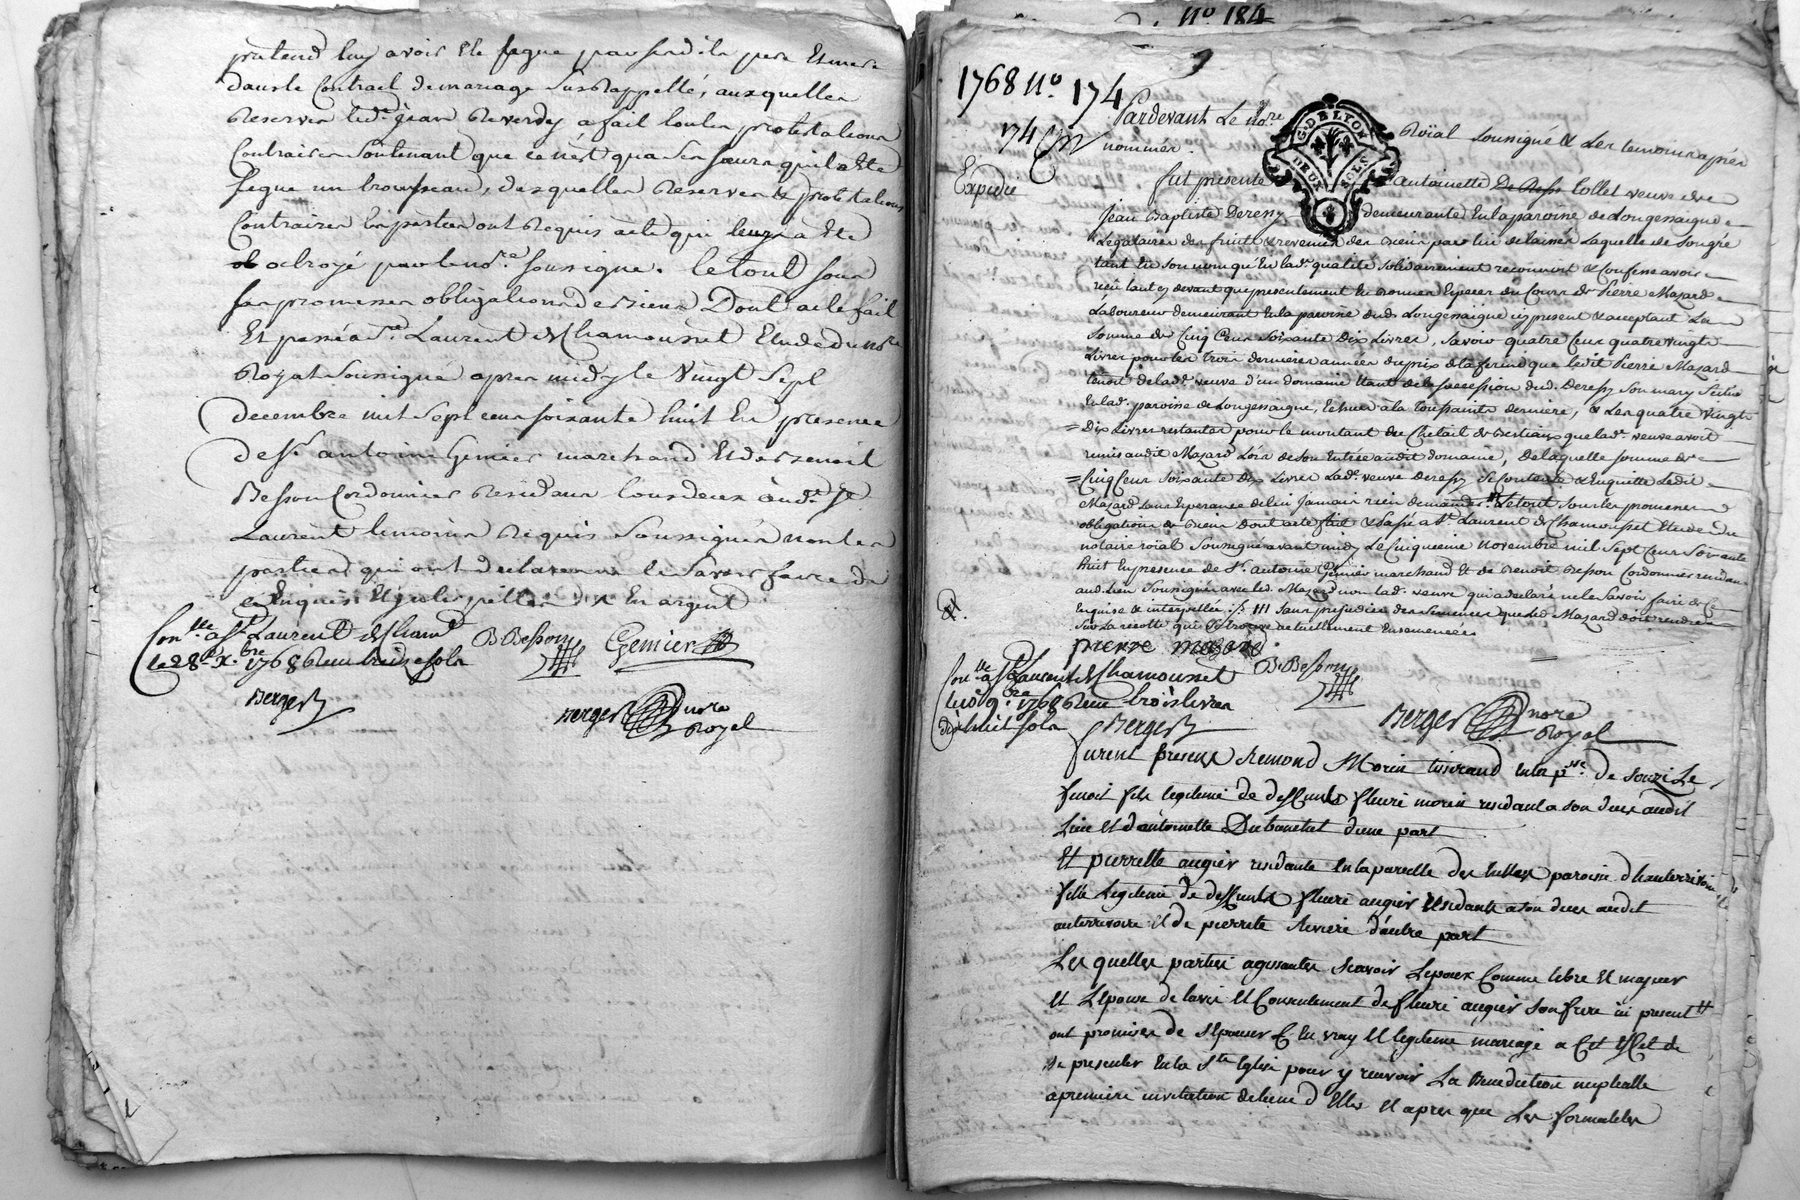 pretend luy avoir été payé par lesdits pere et mere
dans le Contract de mariage sus rappellé, auxquelles
Reserves led. jean Reverdy a fait toutes protestations
Contraires soutenant que ce n'est qu'a ses sœurs qu'il a été
payé un trousseau, desquelles Reserves & protestations
Contraires les parties ont Requis acte qui leur a été
octroyé par le no.re soussigné. le tout sous
les promesses obligations de biens Dont acte fait
Et passé a St. Laurent de Chamousset Etude du no.re
Royal soussigné apres midy le Vingt Sept
decembre mil sept cens soixante huit En presence
de Sr. antoine Genier marchand Et de Benoit
Besson Cordonnier Résidans tous deux aud. St
Laurent temoins Requis soussignés non les
parties qui ont declaré ne le savoir faire de ce
Enquis Et interpellés En argent
Con.lle a St. Laurent de Cham.t
le 28 X.bre 1768 Reçu treize sols
B Besson Genier
Berger
Berger nore
Royal
No 184
1768 No. 174
174
Expedié
G. DE LYON
DEUX SOLS
Pardevant Le no.re Roïal soussigné & les temoins après
nommés.
fut presente antoinette Collet veuve de
jean Baptiste Deressy demeurante en la paroisse de Longessaigne
Legataire des fruits & revenus des biens par lui delaissés Laquelle de son gré
tant en son nom qu'en lad. qualité solidairement reconnoit & confesse avoir
reçu tant cy devant que presentement en bonnes Especes du Cours de Pierre Mazard
Laboureur demeurant en la paroisse dud. Longessaigne icy present & acceptant La
somme de Cinq Cens soixante Dix Livres, savoir quatre Cens quatre vingts
Livres pour les trois dernieres années du prix de la ferme que ledit Pierre Mazard
tenoit de lad. veuve d'un domaine étant de la succession dud. Deressy son mary situé
en lad. paroisse de Longessaigne, echues a la toussaints derniere, & Les quatre vingts
= Dix Livres restantes pour le montant du Cheteil de Bestiaux que lad. veuve avoit
remis audit Mazard Lors de son Entrée audit domaine, de laquelle somme de
= Cinq Cens soixante Dix Livres Lad. veuve Deressy se contente & En quitte Ledit
Mazard sans Esperance de lui jamais rien demander. Le tout sous les promesses
obligations de biens dont acte fait & Passé a St. Laurent de Chamousset Etude du
notaire roïal soussigné avant midy Le Cinquieme novembre mil sept Cens soixante
huit En presence de Sr. antoine Genier marchand Et de Benoit Besson Cordonnier residans
aud. lieu soussignés avec led. Mazard non lad. veuve qui a declaré ne le savoir faire de ce
Enquise & interpellée sans prejudice des semences que led. Mazard doit rendre
sur la recolte qui se trouve actuellement Ensemencée
pierre mazard
B Besson
Con.lle a St Laurent de Chamousset
le 9.bre 1768 Reçu trois livres
dix huit sols Berger
Berger nore
Royal
furent presens Remond Morin tisserand en la p.sse de Souzi Le
fils legitime de deffunts fleuri morin residant a son deces audit
Lieu et d'antoinette Dubanchet d'une part
Et pierrette augier residante en la parcelle des halles paroisse d'hauterivoire
fille Legitime de deffunts fleuri augier residante a son deces audit
auterivoire et de pierrete Riviere d'autre part
Les quelles parties agissantes scavoir L'epoux Comme libre et majeur
et L'Epouse de l'avis et Consentement de fleuri augier son frere ici present
ont promises de s'Epouser En vray et legitime mariage a Cet effet de
se presenter en la Ste Eglise pour y recevoir La Benediction nuptialle
a premiere invitation de l'une d'Elles et apres que Les formalités